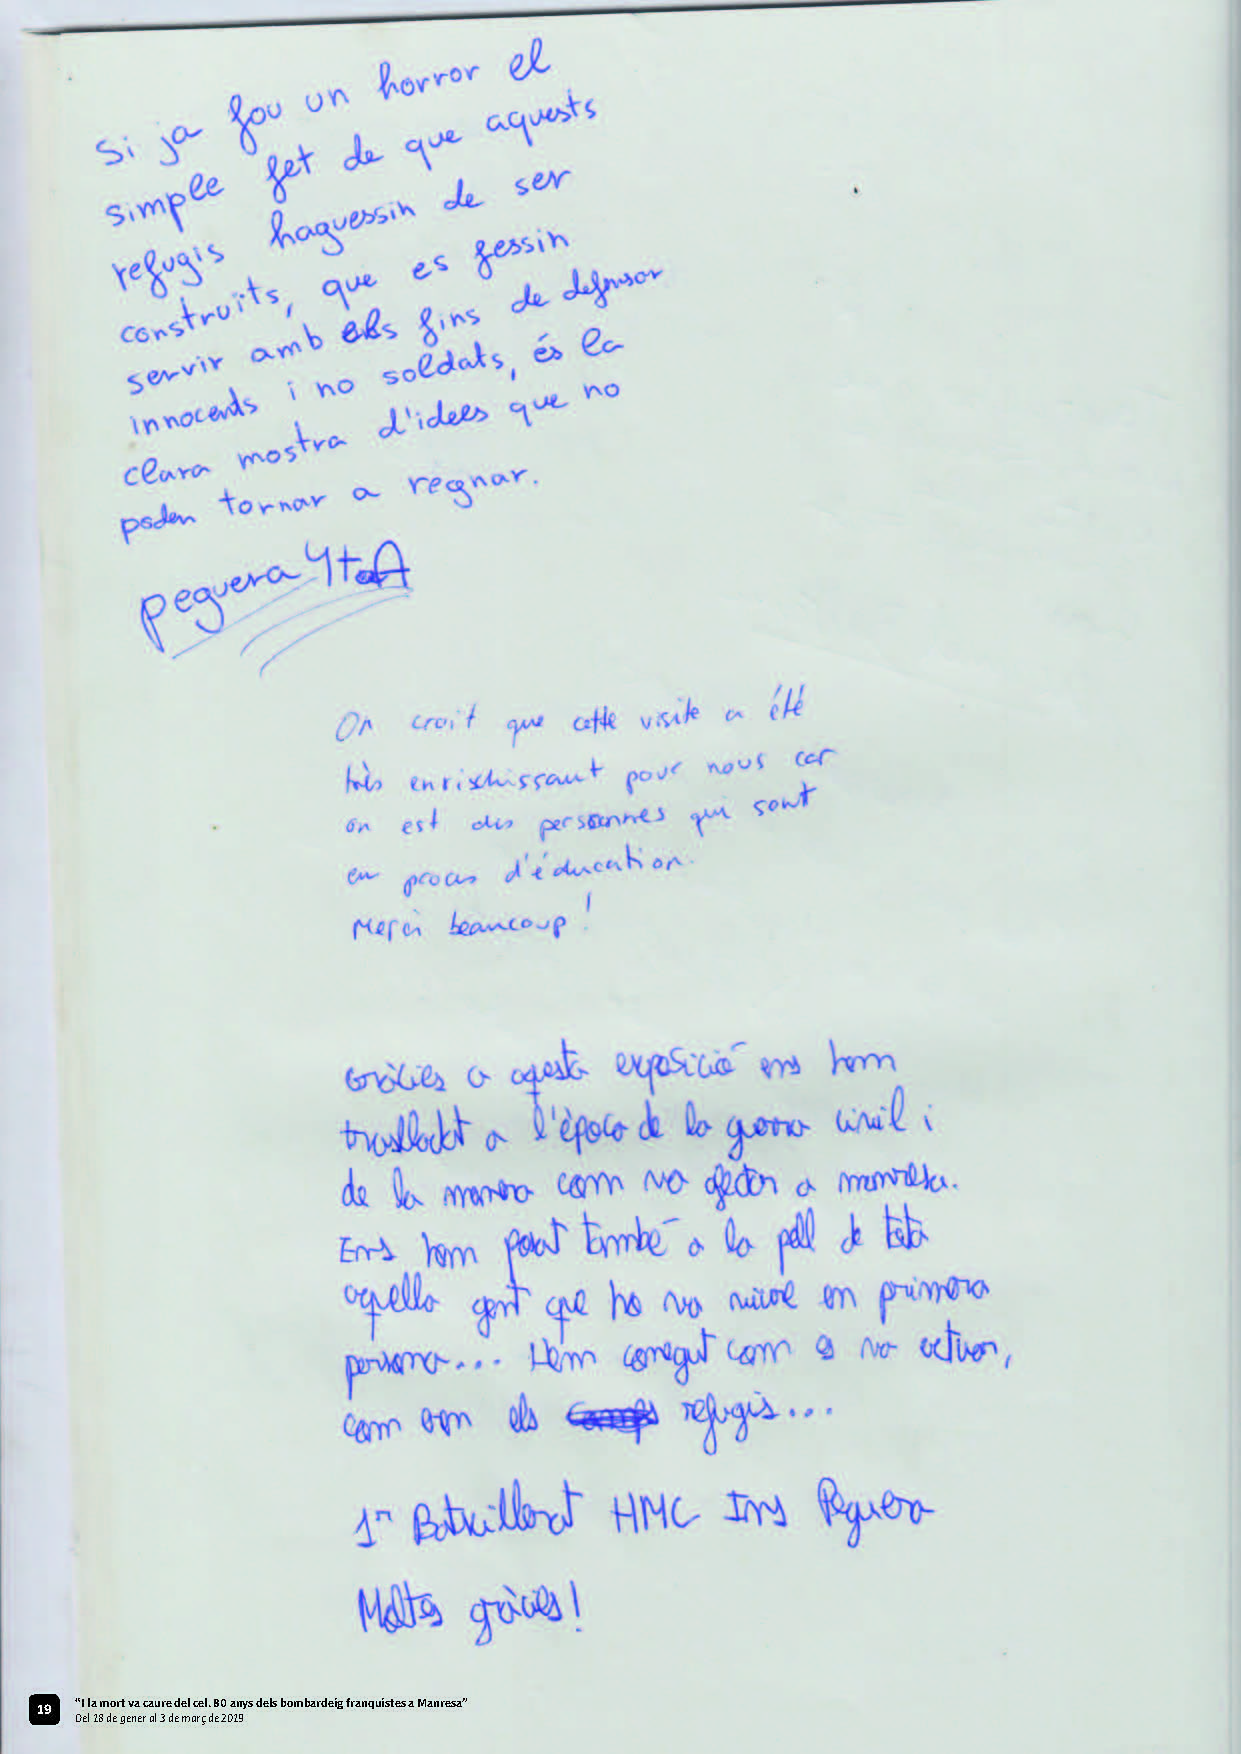 Si ja fou un horror el
simple fet de que aquests
refugis haguessin de ser
construïts, que es fessin
servir amb els fins de defensor
innocents i no soldats, és la
clara mostra d'idees que no
poden tornar a regnar.
peguera 4t A
On croit que cette visite a été
très enrischissant pour nous car
on est des personnes qui sont
en proces d'éducation.
Merci beaucoup!
Gràcies a aquesta exposició ens hem
traslladat a l'època de la guerra civil i
de la manera com va afectar a manresa.
Ens hem posat també a la pell de tota
aquella gent que ho va viure en primera
persona... Hem conegut com es va actuar,
com eren els refugis...
1r Batxillerat HMC Ins Peguera
Moltes gràcies!
19
"I la mort va caure del cel. 80 anys dels bombardeig franquistes a Manresa"
Del 18 de gener al 3 de març de 2019